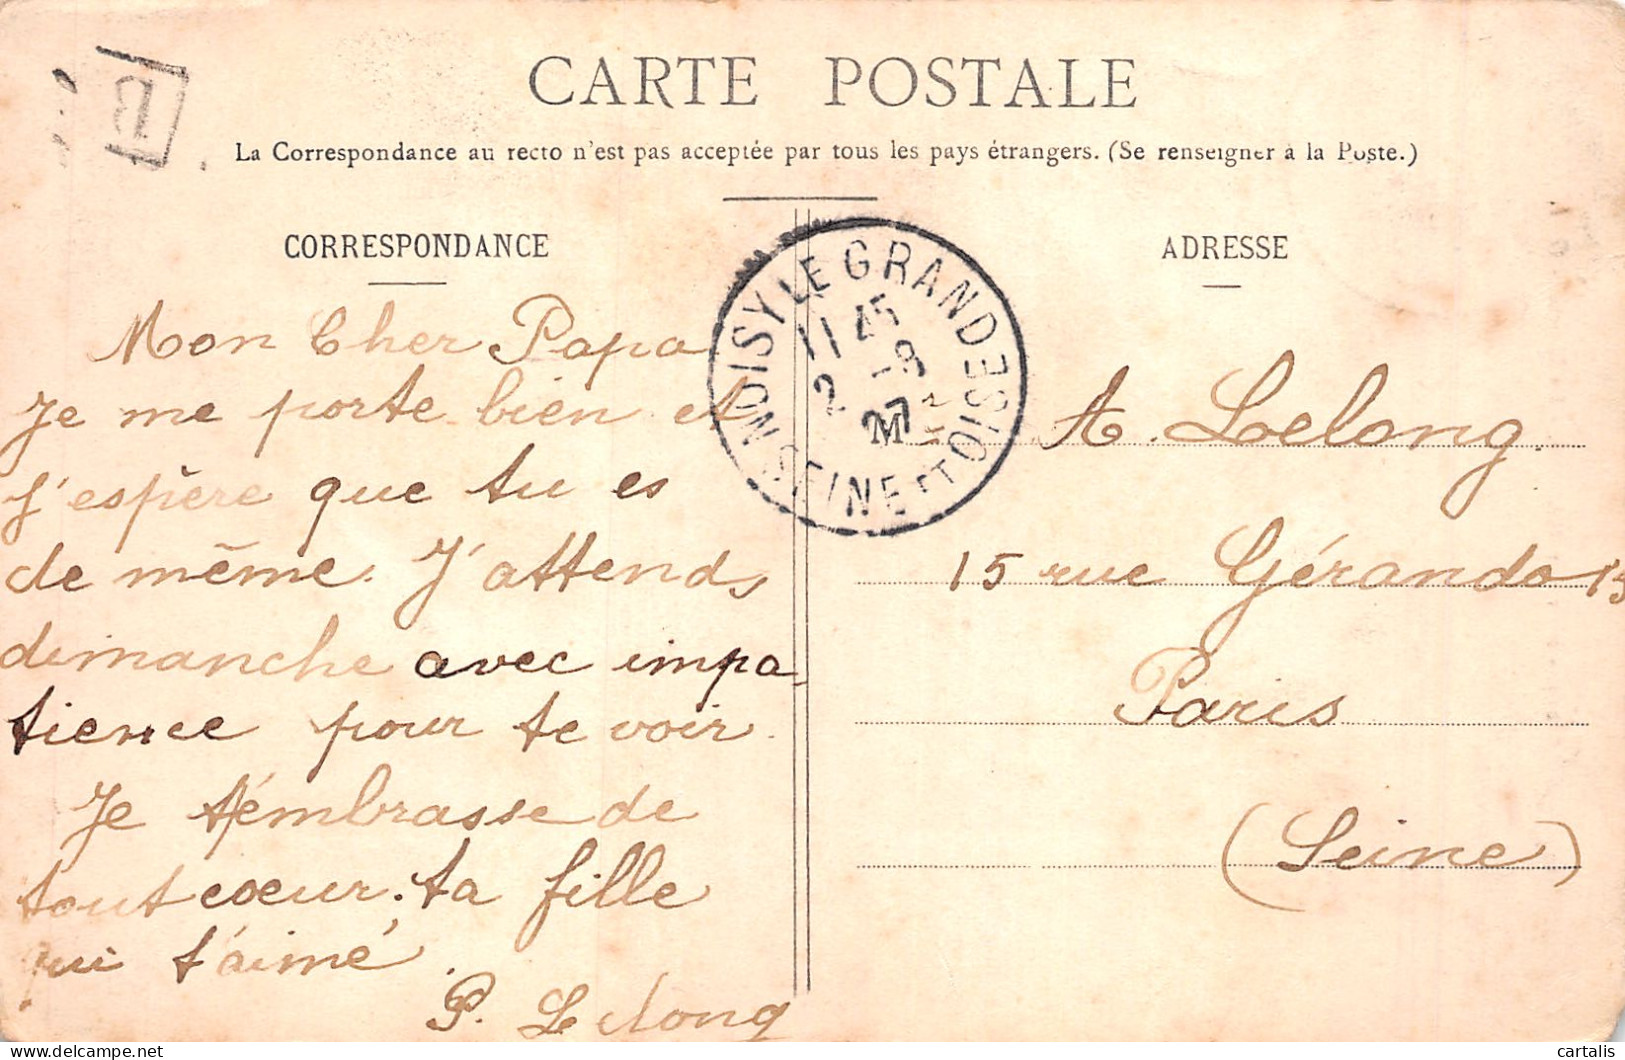 CARTE POSTALE
La Correspondance au recto n'est pas acceptée par tous les pays étrangers. (Se renseigner à la Poste.)
CORRESPONDANCE
Mon Cher Papa
Je me porte bien et
j'espère que tu es
de même. J'attends
dimanche avec impa-
tience pour te voir.
Je t'émbrasse de
tout coeur. ta fille
qui t'aimé.
P. Lelong
NOISY LE GRAND
SEINE ET OISE
11 45
2 -8
ADRESSE
A. Lelong.
15 rue Gérando 15
Paris
(Seine)
delcampe.net
cartalis